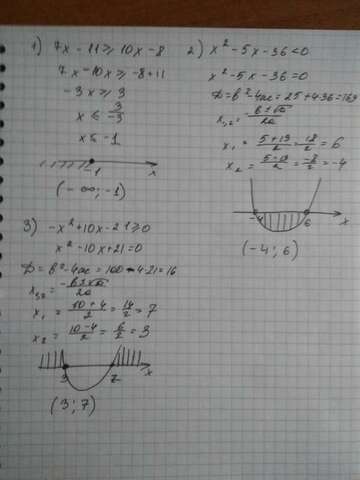 1) 7x - 11 ≥ 10x - 8
7x - 10x ≥ -8 + 11
-3x ≥ 3
x ≤ 3/-3
x ≤ -1
-1 x
(-∞; -1)
2) x² - 5x - 36 < 0
x² - 5x - 36 = 0
D = b² - 4ac = 25 + 4·36 = 169
x₁,₂ = -b±√D/2a
x₁ = 5+13/2 = 18/2 = 6
x₂ = 5-13/2 = -8/2 = -4
-4 6
(-4; 6)
3) -x² + 10x - 21 ≥ 0
x² - 10x + 21 = 0
D = b² - 4ac = 100 - 4·21 = 16
x₁,₂ = -b±√D/2a
x₁ = 10+4/2 = 14/2 = 7
x₂ = 10-4/2 = 6/2 = 3
3 7 x
(3; 7)